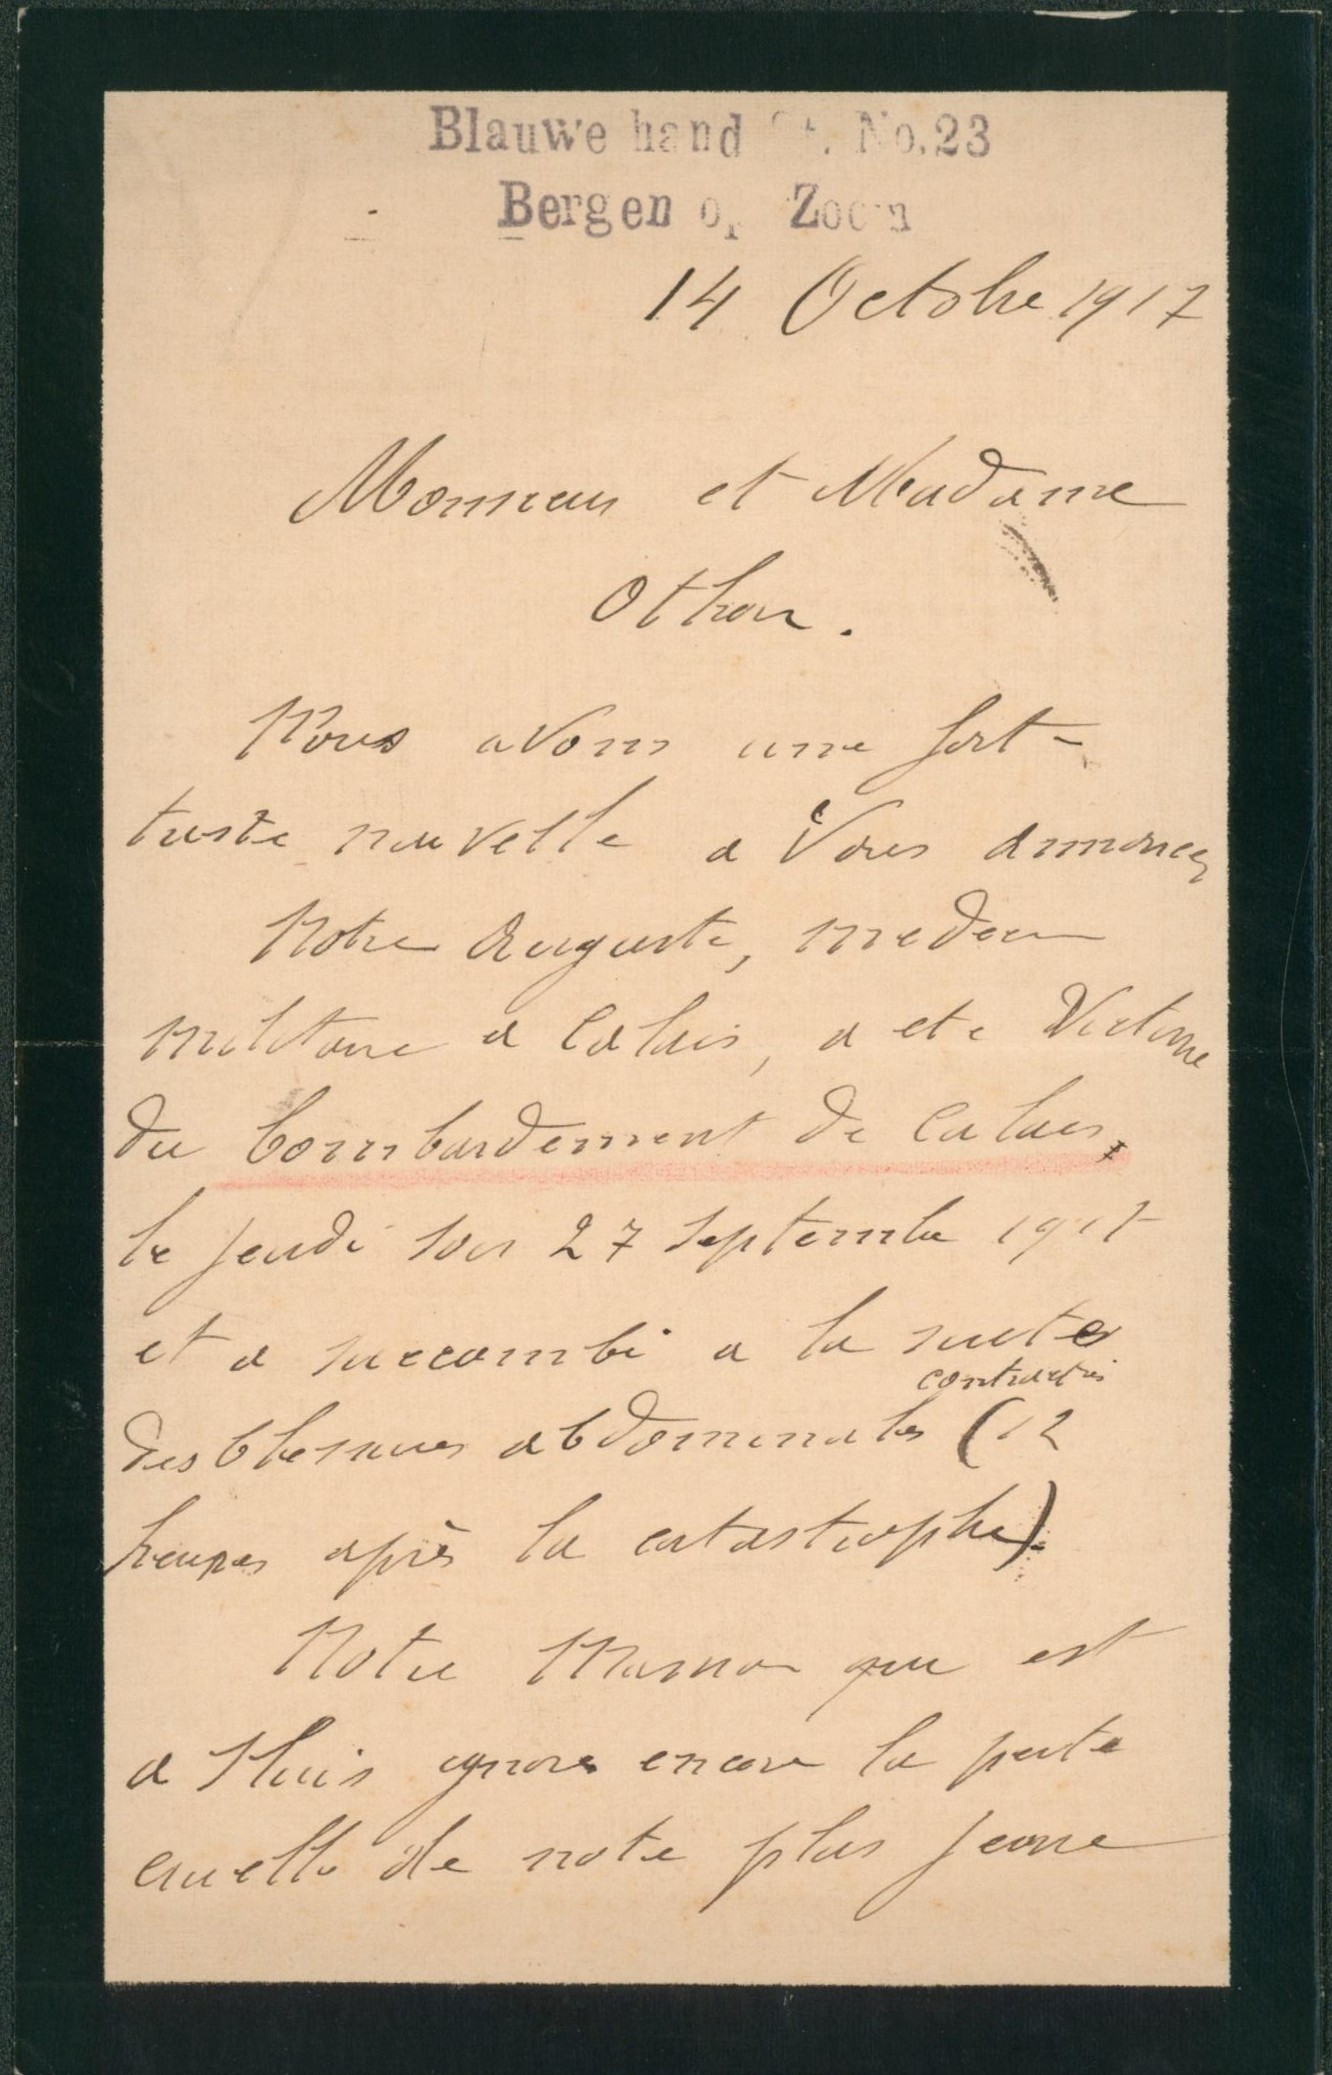 Blauwe hand St. No.23
Bergen op Zoom
14 Octobre 1917
Monsieur et Madame
Othon.
Nous avons une fort
triste nouvelle a Vous annoncer
Notre Auguste, medecin
militaire a Calais, a ete Victime
du bombardement de Calais,
le jeudi soir 27 Septembre 1917
et a succombé a la suite
contractées
des blessures abdominales (12
heures après la catastrophe).
Notre Maman qui est
a Sluis ignore encore la perte
cruelle de notre plus jeune